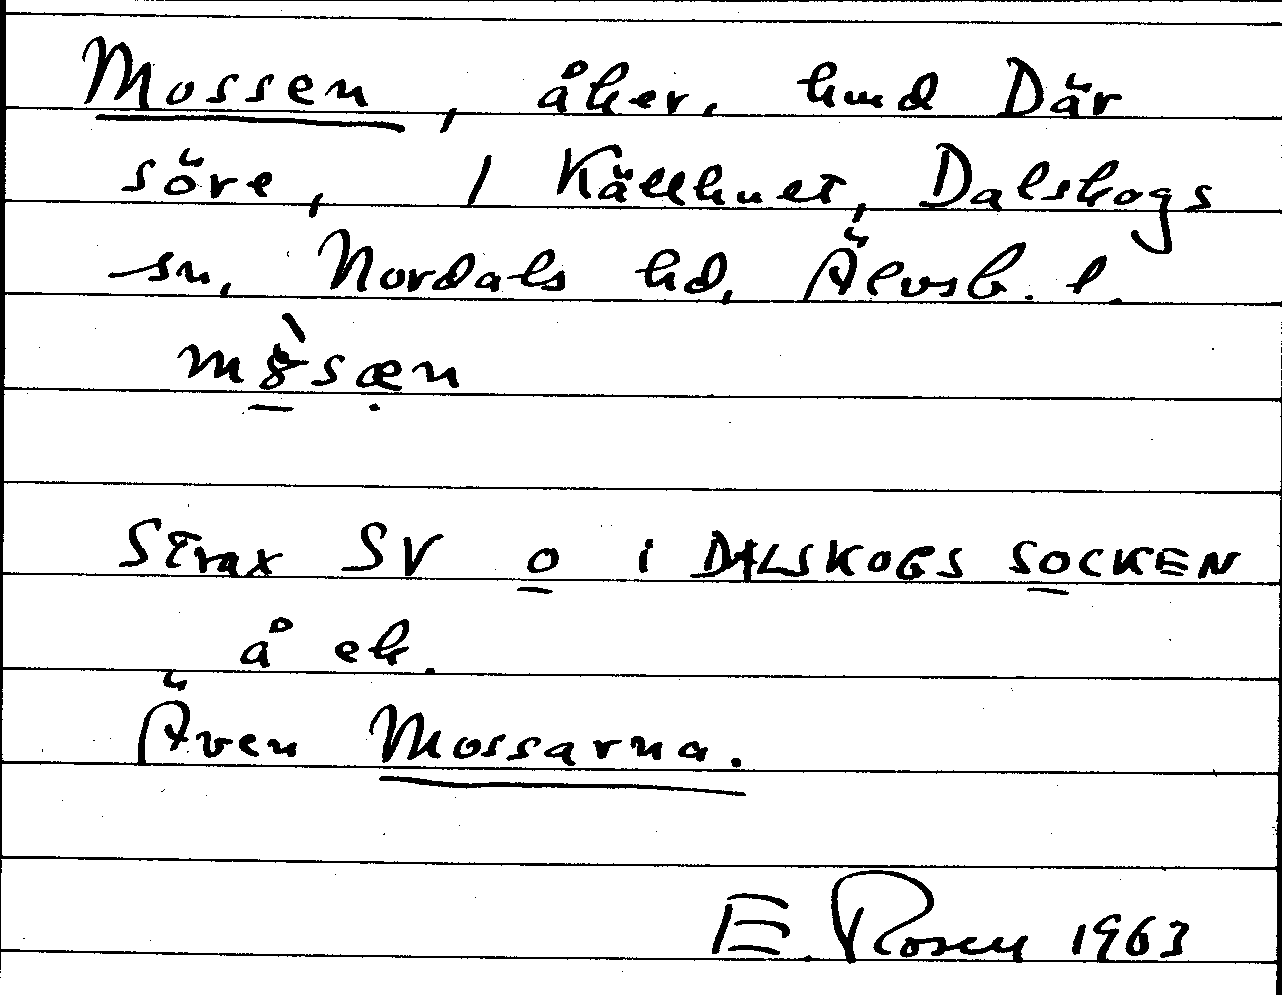 Mossen, åker, hmd Där
söre, 1 Källhult, Dalskogs
sn, Nordals hd, Älvsb. l.
Strax SV o i DALSKOGS SOCKEN
å ek.
Även Mossarna.
E. Rosen 1963